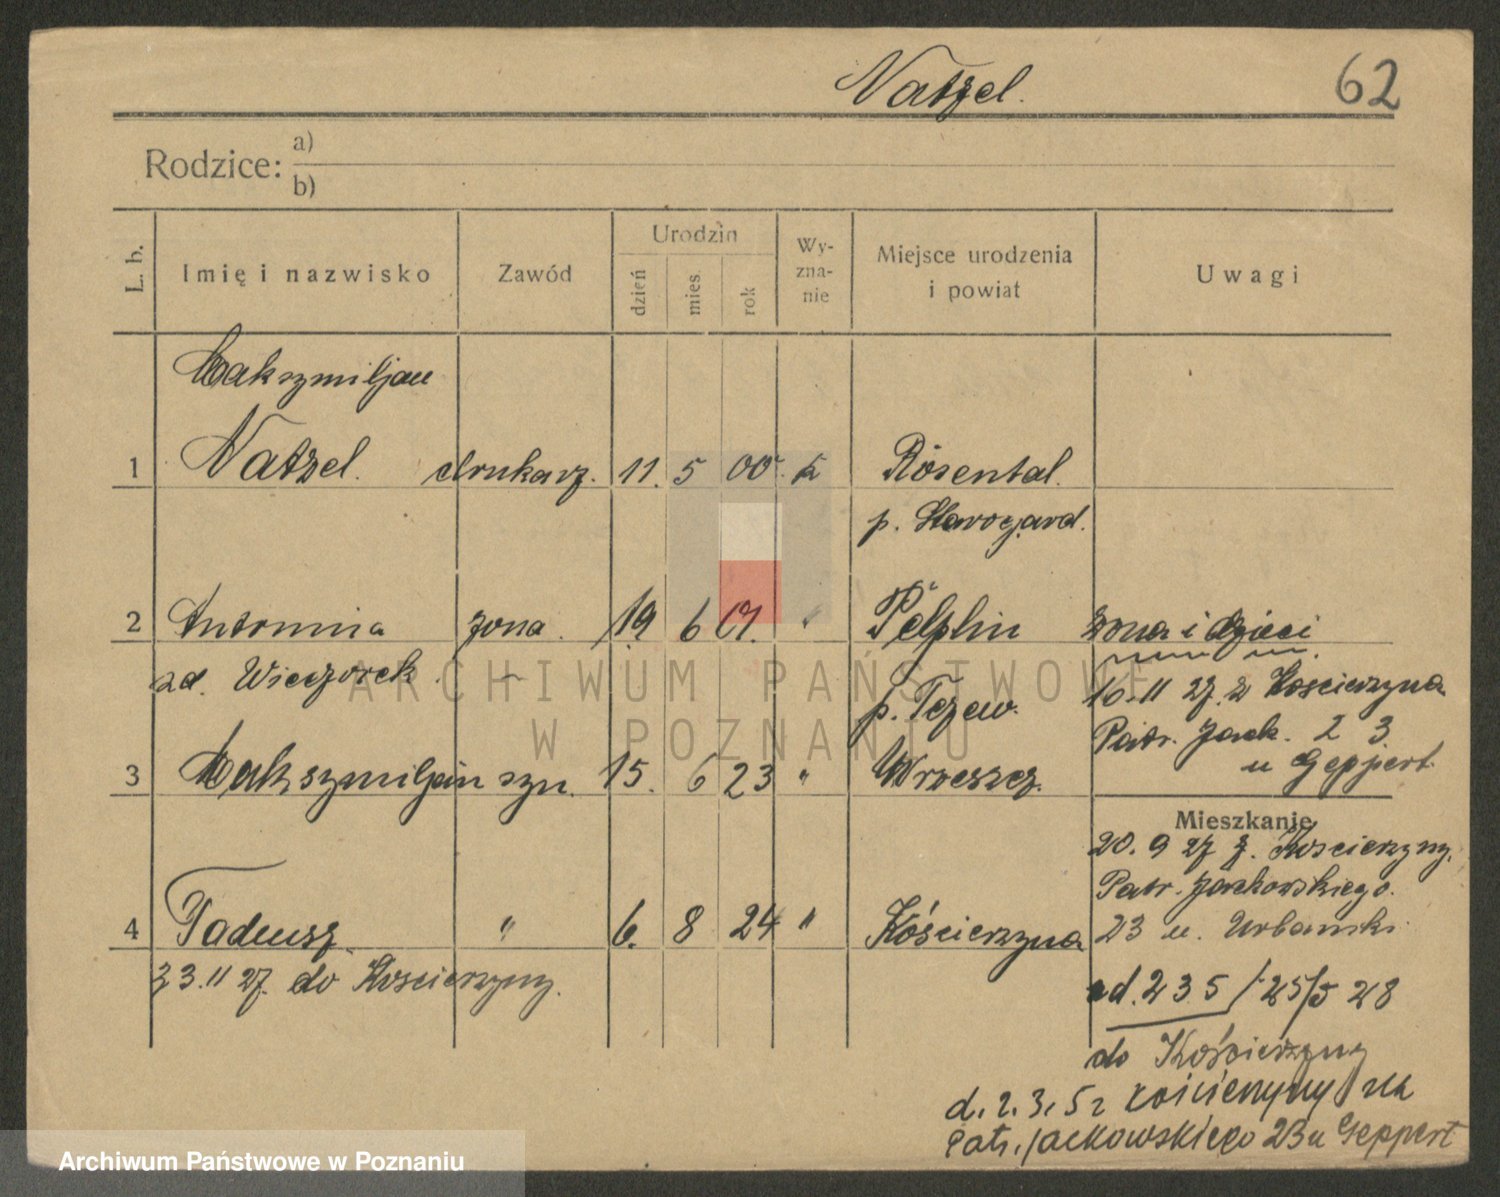 Natzel.
62
Rodzice:
a)
b)
L. b.
Imię i nazwisko
Zawód
Urodzin
dzień
mies.
rok
Wy-
zna-
nie
Miejsce urodzenia
i powiat
Uwagi
Maksymiljan
1 Natzel. drukarz. 11. 5 00 k Rosental.
p. Starogard.
2 Antonina żona. 19 6 01. " Pelplin żona i dzieci
zd. Wieczorek. p. Tczew. 10.11 27. z Kościerzyna
Patr. Jack. 23
u Geppert
3 Makszymiljan syn. 15. 6 23 " Wrzeszcz.
Mieszkanie
20. 9 27 z. Kościerzyny.
Patr. Jackowskiego.
4 Tadeusz " 6. 8 24 " Kościerzyna 23 u. Urbański
23.11 27. do Kościerzyny.
d. 235 / 25/5 28
do Kościerzyny
d. 2.3. z Kościerzyny na
Patr. Jackowskiego 23 u Geppert
ARCHIWUM PAŃSTWOWE
W POZNANIU
Archiwum Państwowe w Poznaniu